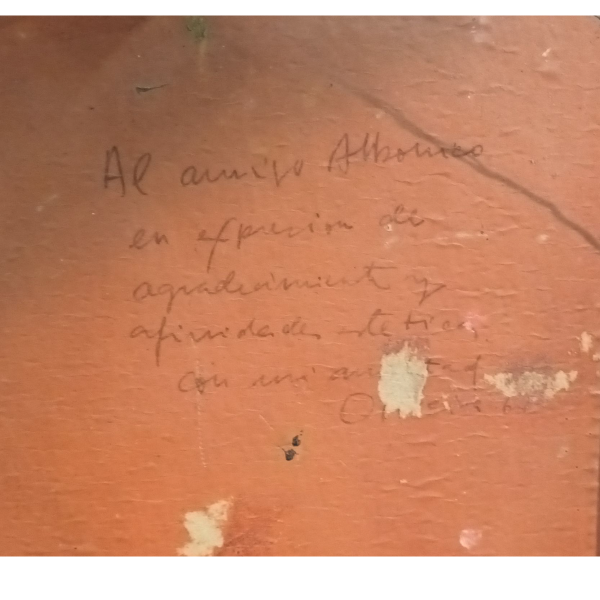 Al amigo
en expresion de
agradecimiento y
afinidades esteticas
con mi amistad